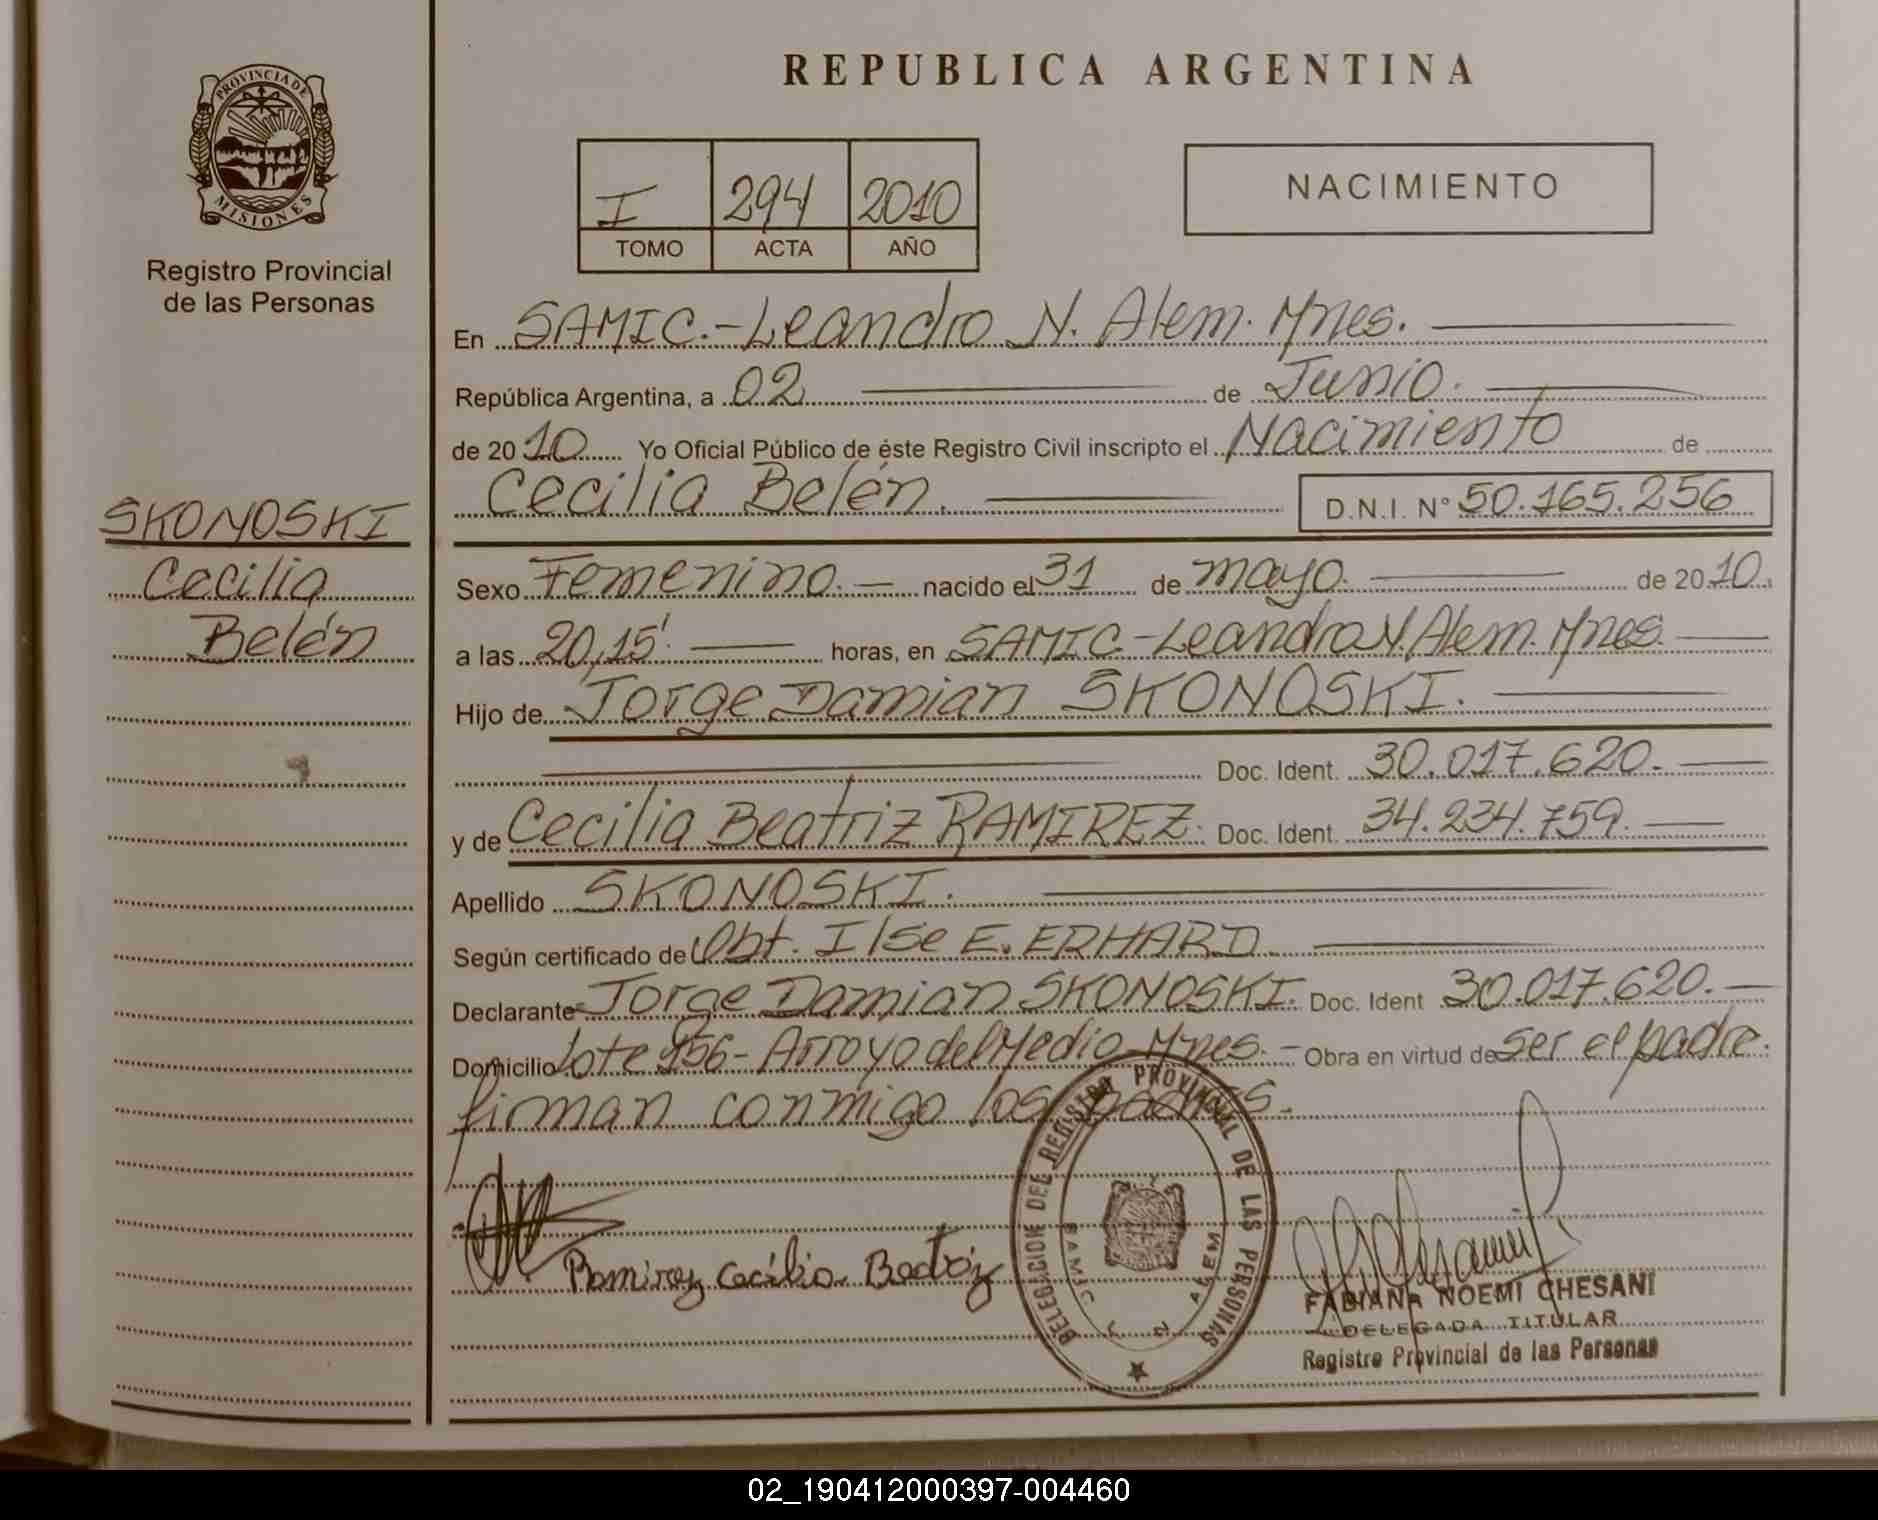 REPUBLICA ARGENTINA
PROVINCIA DE
MISIONES
Registro Provincial
de las Personas
I 294 2010
TOMO ACTA AÑO
NACIMIENTO
En SAMIC.-Leandro N. Alem. Mnes.
República Argentina, a 02 de Junio.
de 2010 Yo Oficial Público de éste Registro Civil inscripto el Nacimiento de
Cecilia Belén. D.N.I. N° 50.165.256
SKONOSKI
Cecilia
Belén
Sexo Femenino.— nacido el 31 de mayo. de 2010.
a las 20,15'. horas, en SAMIC.-Leandro N. Alem. Mnes.
Hijo de Jorge Damian SKONOSKI.
Doc. Ident. 30.017.620.
y de Cecilia Beatriz RAMIREZ. Doc. Ident. 34.234.759.
Apellido SKONOSKI.
Según certificado de Obt. Ilse E. ERHARD.
Declarante Jorge Damian SKONOSKI. Doc. Ident 30.017.620.
Domicilio Lote 156- Arroyo del Medio Mnes.- Obra en virtud de ser el padre.
firman conmigo los padres.
Ramirez Cecilia Beatriz
DELEGACION DEL REGISTRO PROVINCIAL DE LAS PERSONAS
SAMIC L N ALEM
FABIANA NOEMI CHESANI
DELEGADA TITULAR
Registro Provincial de las Personas
02_190412000397-004460